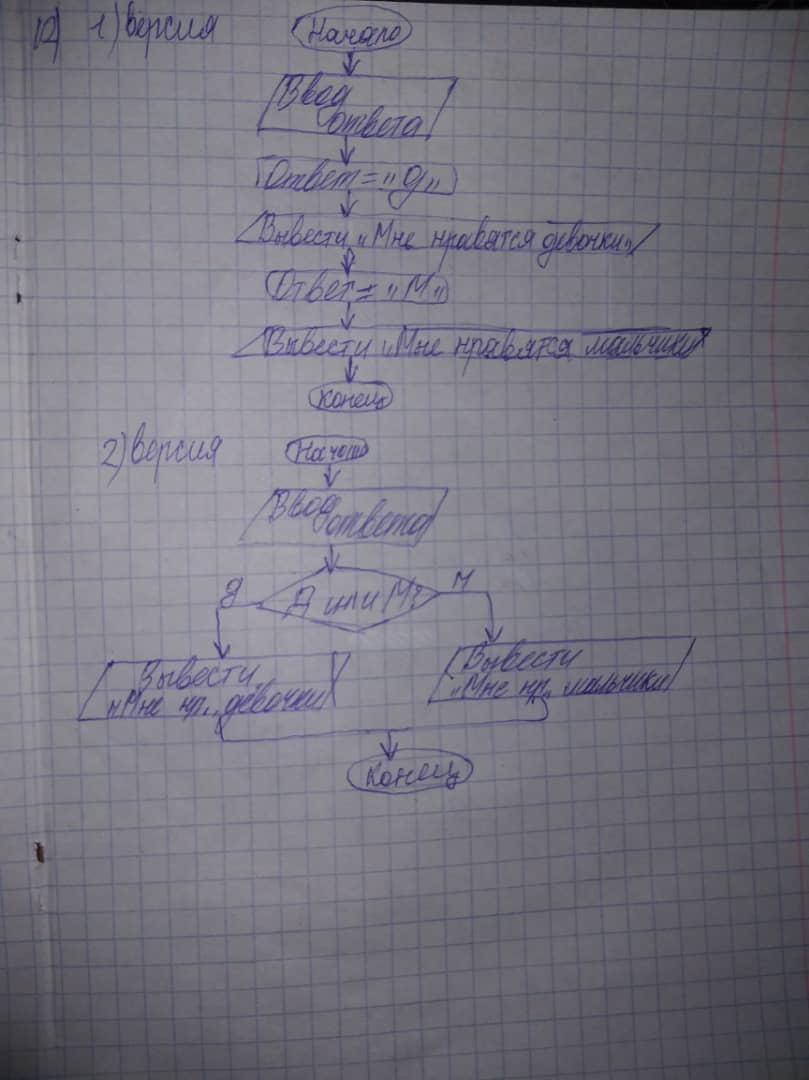 12) 1) версия
Начало
Ввод
ответа
Ответ = „д"
Вывести „Мне нравятся девочки"
Ответ = „М"
Вывести „Мне нравятся мальчики"
Конец
2) версия
Начало
Ввод
ответа
Д или М?
д
м
Вывести
„Мне нр. девочки"
Вывести
„Мне нр. мальчики"
Конец